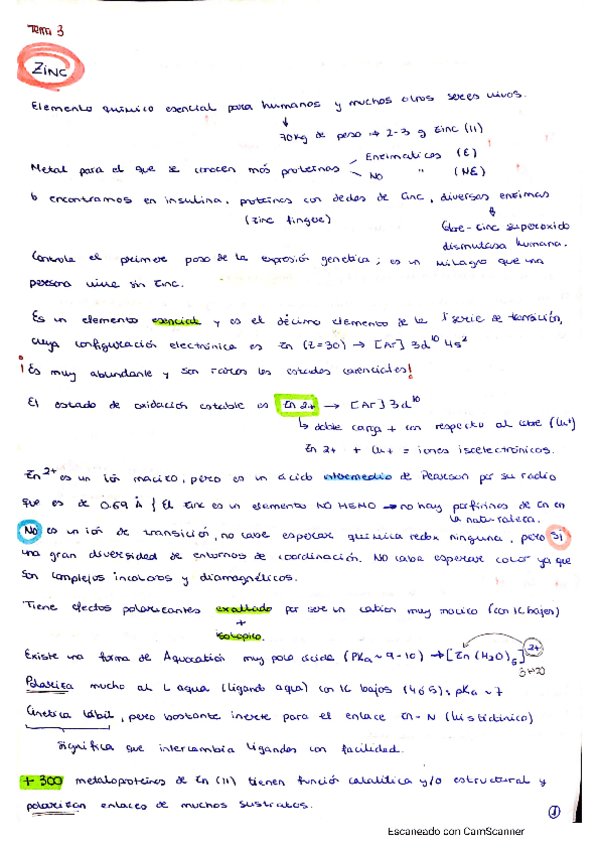 Tema 3
ZINC
Elemento químico esencial para humanos y muchos otros seres vivos.
↓
70Kg de peso → 2-3 g Zinc (II)
Metal para el que se conocen más proteínas
Enzimáticas (E)
NO " (NE)
encontramos en insulina, proteínas con dedos de cinc, diversas enzimas
(zinc fingue)
Cobre-cinc superoxido
dismutasa humana.
Controla el primere paso de la expresión genética; es un milagro que una
persona viva sin zinc.
Es un elemento esencial y es el décimo elemento de la 1ª serie de transición,
cuya configuración electrónica es Zn (Z=30) → [Ar] 3d10 4s2
¡Es muy abundante y son raros los estados carenciales!
El estado de oxidación estable es Zn 2+ → [Ar] 3d10
↳ doble carga + con respecto al cobre (Cu+)
Zn 2+ + Cu+ = iones isoelectrónicos.
Zn2+ es un ión macizo, pero es un ácido intermedio de Pearson por su radio
que es de 0.69 Å } El zinc es un elemento NO HEMO → no hay porfirinas de Zn en
la naturaleza.
No es un ión de transición, no cabe esperar química redox ninguna, pero SÍ
una gran diversidad de entornos de coordinación. No cabe esperar color ya que
son complejos incoloros y diamagnéticos.
Tiene efectos polarizantes exaltado por ser un catión muy macizo (con IC bajos)
+
isotópico.
Existe una forma de Aquocatión muy poco ácida (PKa ~ 9-10) → [Zn(H2O)6]2+
Polariza mucho al L agua (ligando agua) con IC bajos (4 ó 5); pKa ~ 7
Cinética lábil, pero bastante inerte para el enlace Zn-N (histidínico)
Significa que intercambia ligandos con facilidad.
+ 300 metaloproteínas de Zn (II) tienen función catalítica y/o estructural y
polarizan enlaces de muchos sustratos.
1
Escaneado con CamScanner